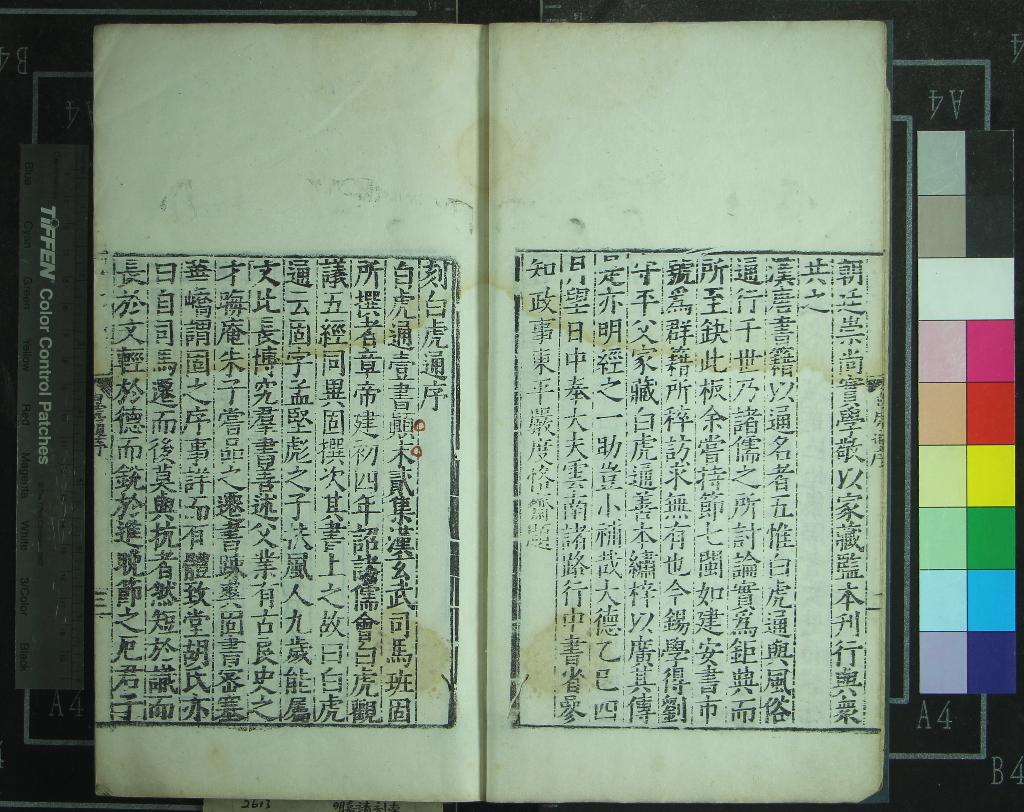 朝廷崇尚實學敬以家藏監本刊行與衆
共之
漢唐書籍以通名者五惟白虎通與風俗
通行于世乃諸儒之所討論實爲鉅典而
所至缺此板余嘗持節七閩如建安書市
號爲群籍所稡訪求無有也今錫學得劉
守平父家藏白虎通善本繡梓以廣其傳
是亦明經之一助豈小補哉大德乙巳四
月望日中奉大夫雲南諸路行中書省參
知政事東平嚴度恪齋題
刻白虎通序
白虎通壹書顛末貳集漢玄武司馬班固
所撰者章帝建初四年詔諸儒會白虎觀
議五經同異固撰次其書上之故曰白虎
通云固字孟堅彪之子扶風人九歲能屬
文比長博究羣書善述父業有古良史之
才晦庵朱子嘗品之遷書踈爽固書密塞
華嶠謂固之序事詳而有體致堂胡氏亦
曰自司馬遷而後莫與抗者然短於識而
長於文輕於德而銳於進晚節之厄君子
TIFFEN Color Control Patches
Blue
Cyan
Green
Yellow
Red
Magenta
White
3/Color
Black
A4
A4
A4
A4
B4
B4
2613